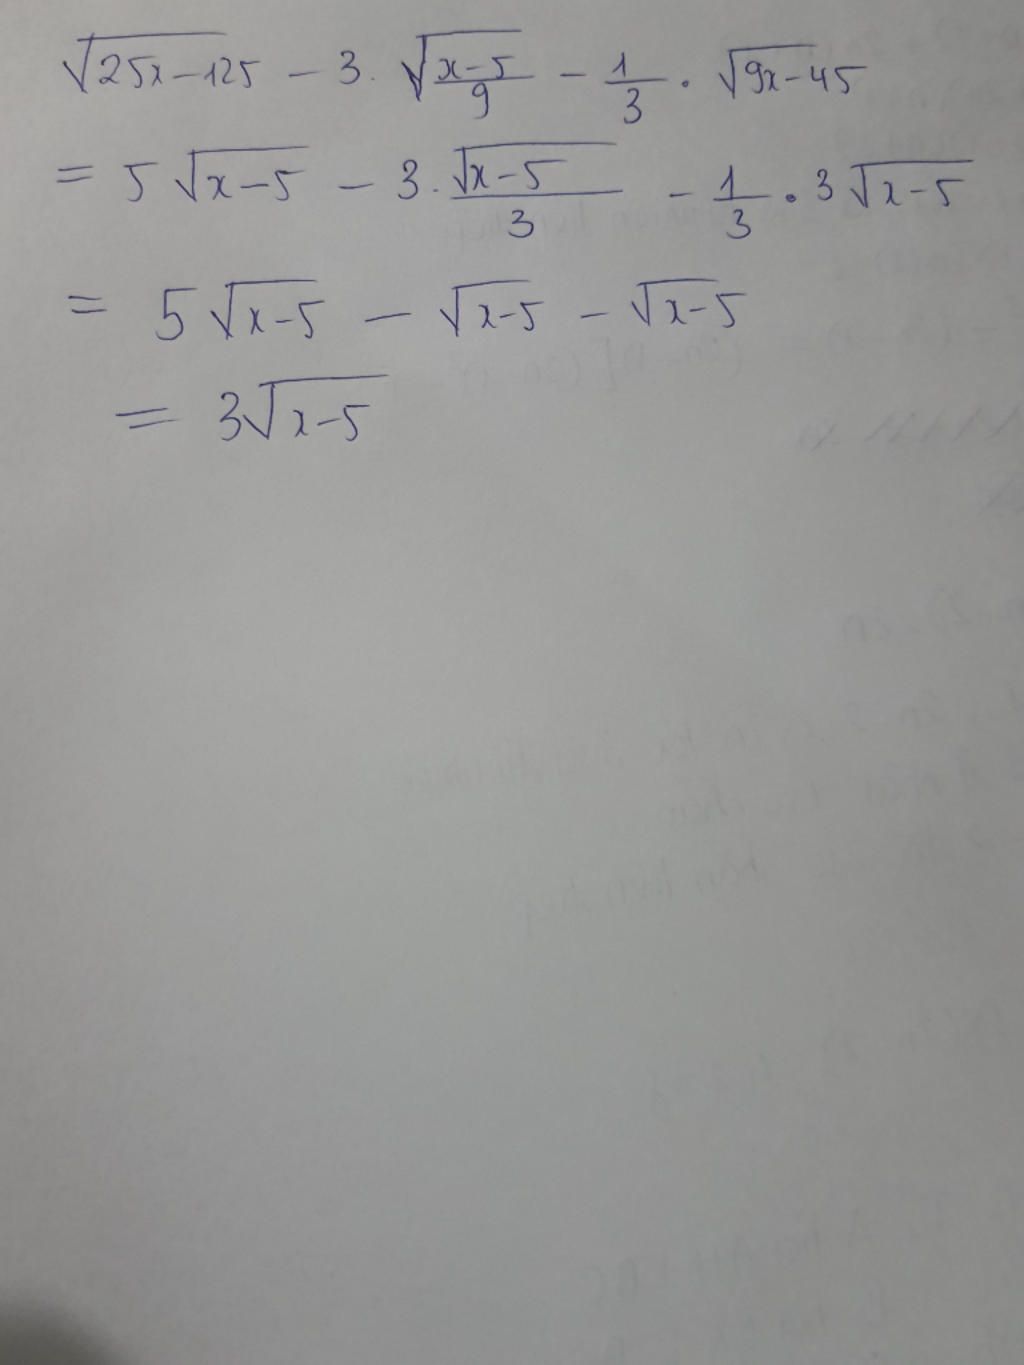 √25x-125 - 3. √x-5/9 - 1/3 . √9x-45
= 5√x-5 - 3. √x-5/3 - 1/3 . 3√x-5
= 5√x-5 - √x-5 - √x-5
= 3√x-5